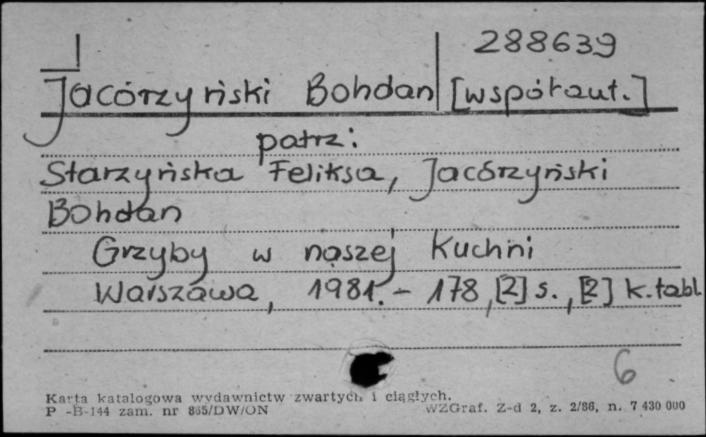 288639
Jacórzyński Bohdan [współaut.]
patrz:
Starzyńska Feliksa, Jacórzyński
Bohdan
Grzyby w naszej kuchni
Warszawa, 1981. - 178, [2] s., [2] k. tabl
6
Karta katalogowa wydawnictw zwartych i ciągłych.
P -B-144 zam. nr 865/DW/ON WZGraf. Z-d 2, z. 2/86, n. 7 430 000